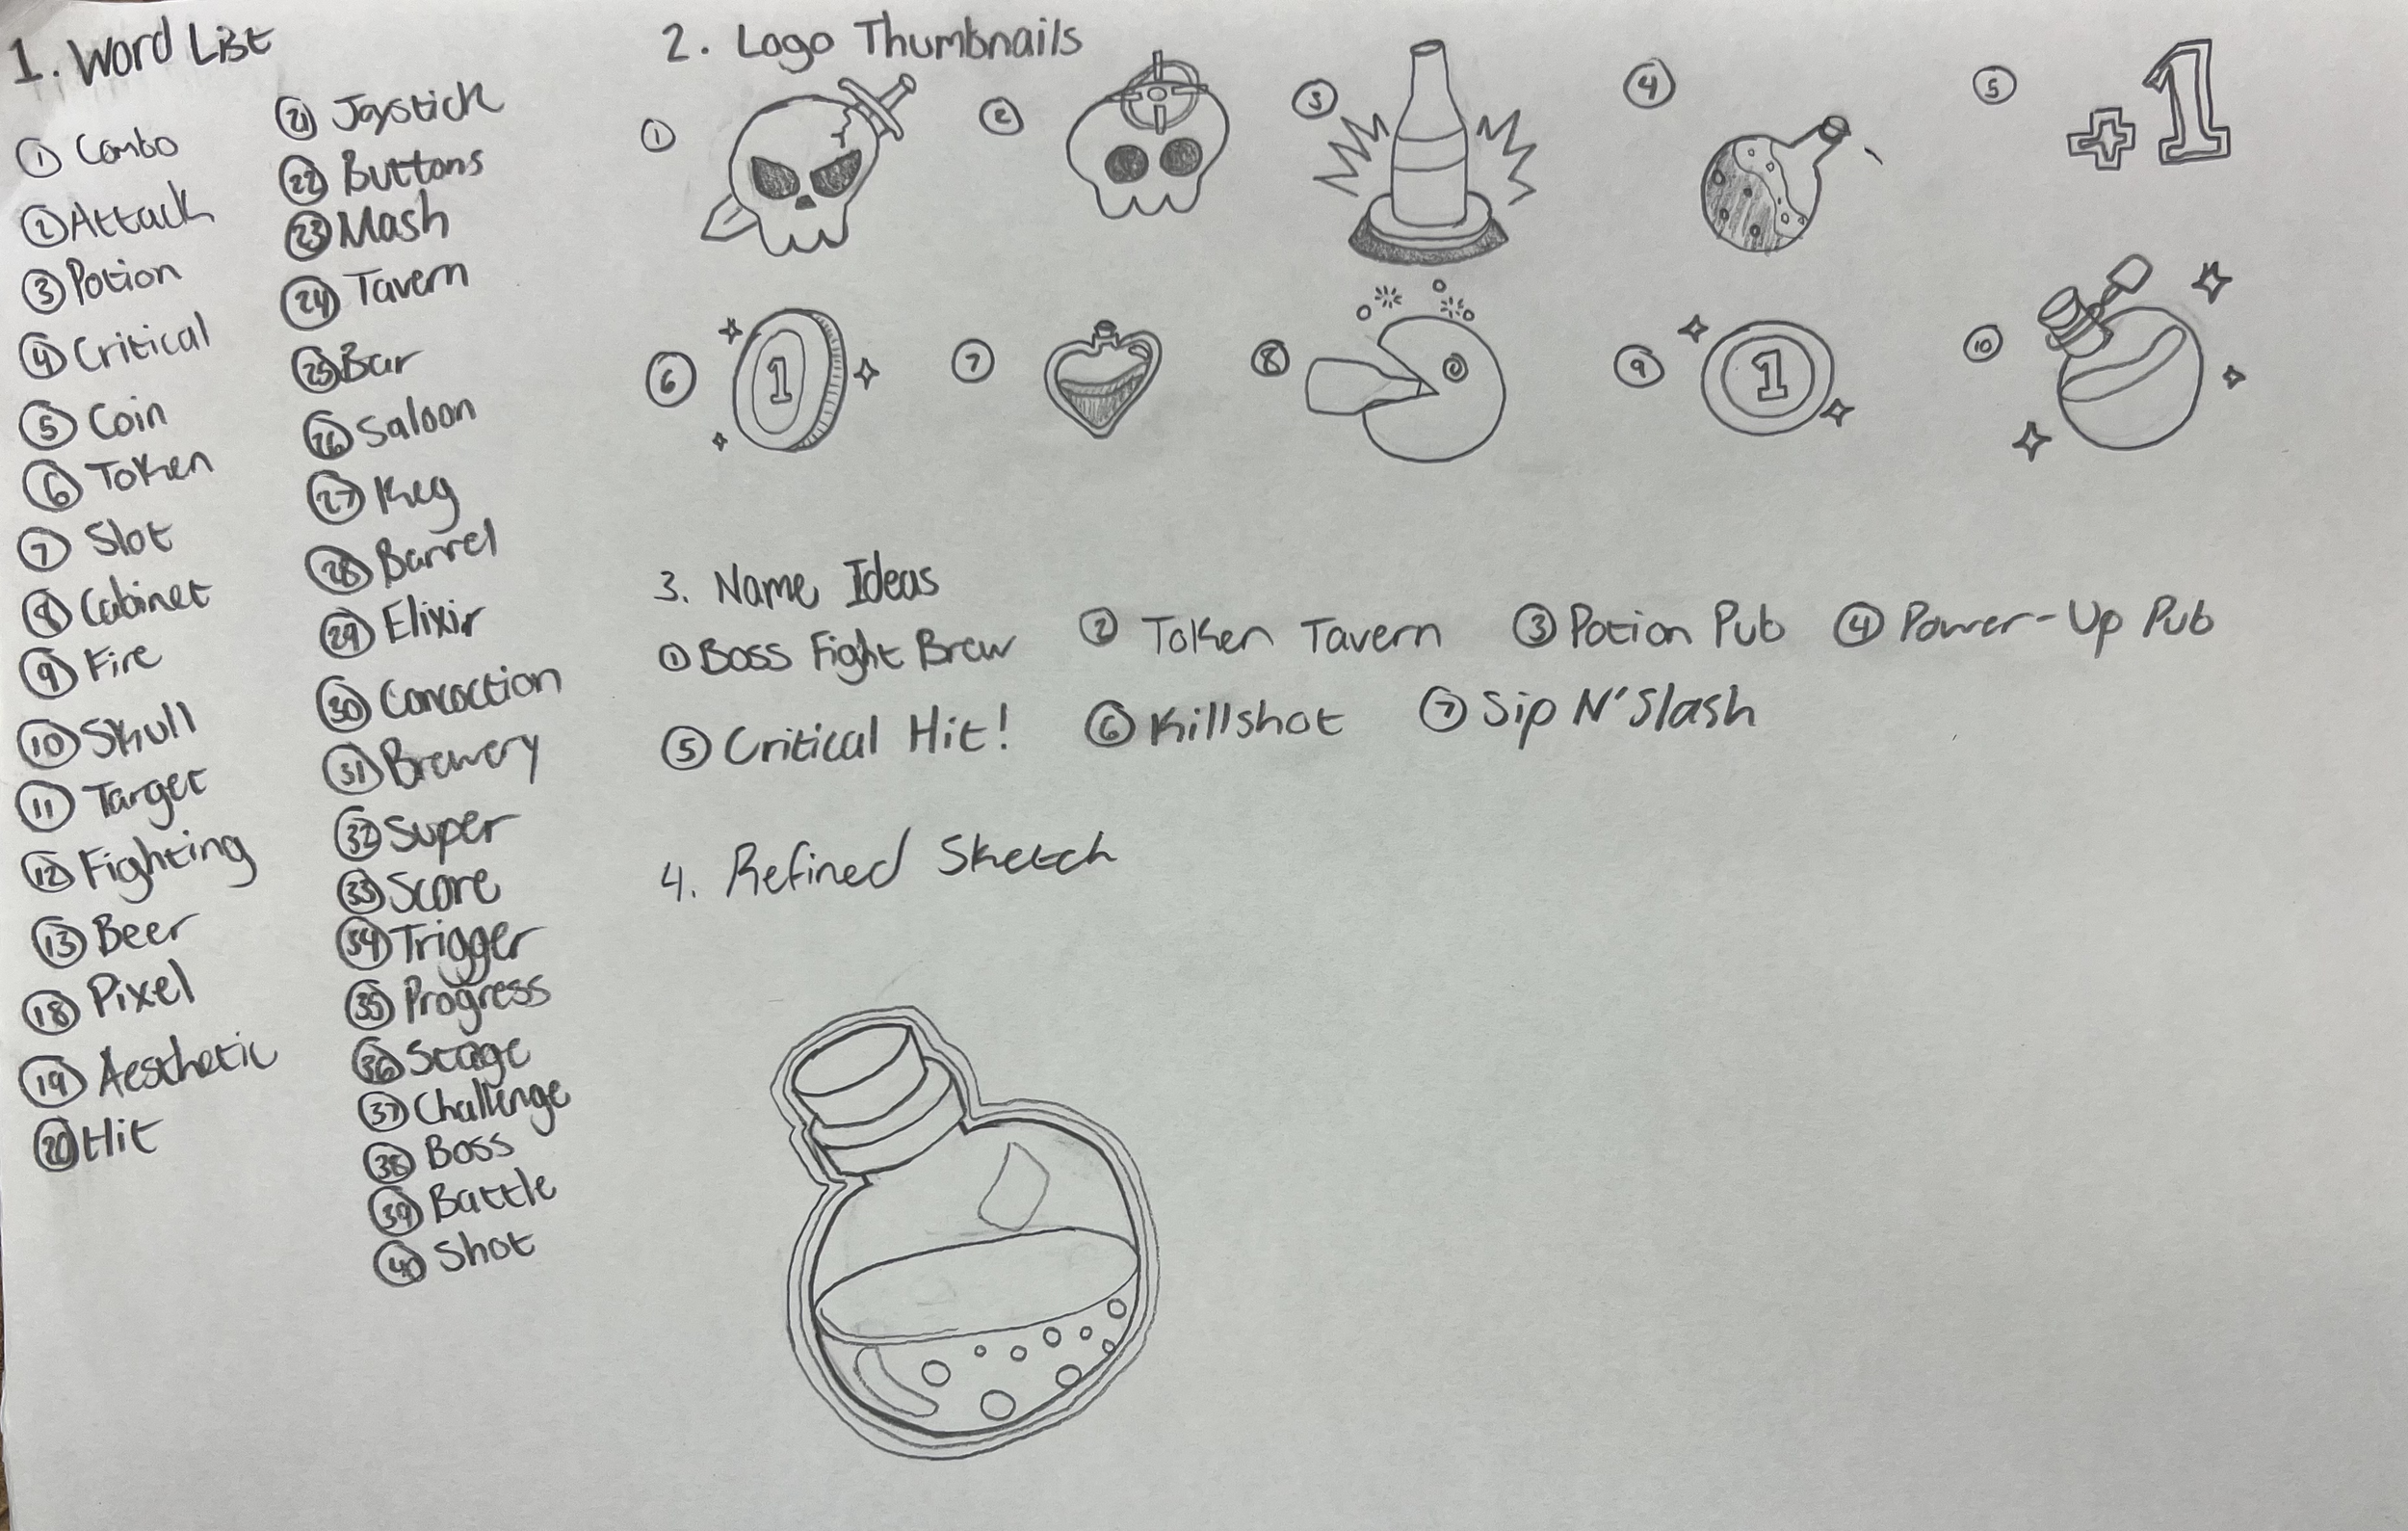 1. Word List
① Combo
② Attack
③ Potion
④ Critical
⑤ Coin
⑥ Token
⑦ Slot
⑧ Cabinet
⑨ Fire
⑩ Skull
⑪ Target
⑫ Fighting
⑬ Beer
⑱ Pixel
⑲ Aesthetic
⑳ Hit
㉑ Joystick
㉒ Buttons
㉓ Mash
㉔ Tavern
㉕ Bar
㉖ Saloon
㉗ Keg
㉘ Barrel
㉙ Elixir
㉚ Concoction
㉛ Brewery
㉜ Super
㉝ Score
㉞ Trigger
㉟ Progress
㊱ Stage
㊲ Challenge
㊳ Boss
㊴ Battle
㊵ Shot
2. Logo Thumbnails
① ② ③ ④ ⑤ +1
⑥ 1 ⑦ ⑧ ⑨ 1 ⑩
3. Name Ideas
① Boss Fight Brew ② Token Tavern ③ Potion Pub ④ Power-Up Pub
⑤ Critical Hit! ⑥ Killshot ⑦ Sip N' Slash
4. Refined Sketch